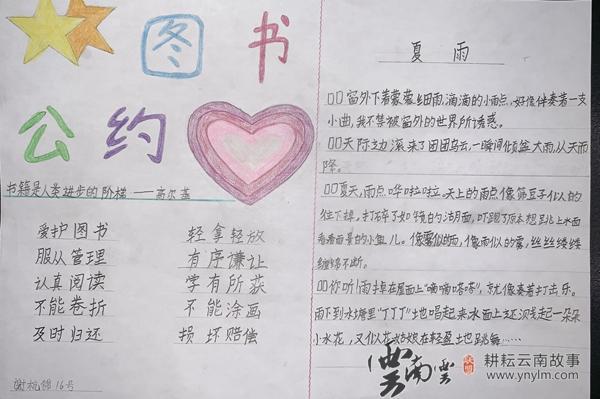 图书
公约
书籍是人类进步的阶梯——高尔基
爱护图书 轻拿轻放
服从管理 有序谦让
认真阅读 学有所获
不能卷折 不能涂画
及时归还 损坏赔偿
16号
夏雨
窗外下着蒙蒙细雨,滴滴的小雨点,好像伴奏着一支
小曲,我不禁被窗外的世界所诱惑。
天际边滚来了团团乌云,一瞬间倾盆大雨,从天而
降。
夏天,雨点哗啦啦。天上的雨点像筛豆子似的
往下掉,打碎了如镜的湖面,吓跑了原本想跳上水面
看看面景的小鱼儿。像雾似的雨,像雨似的雾,丝丝缕缕
缠绵不断。
你听!雨掉在屋面上“嘀嘀嗒嗒”,就像奏着打击乐。
雨下到水塘里“丁丁丁”地唱起来水面上还泛起一朵朵
小水花,又似花姑娘在轻盈地跳舞……
云南云
耕耘云南故事
www.ynylm.com